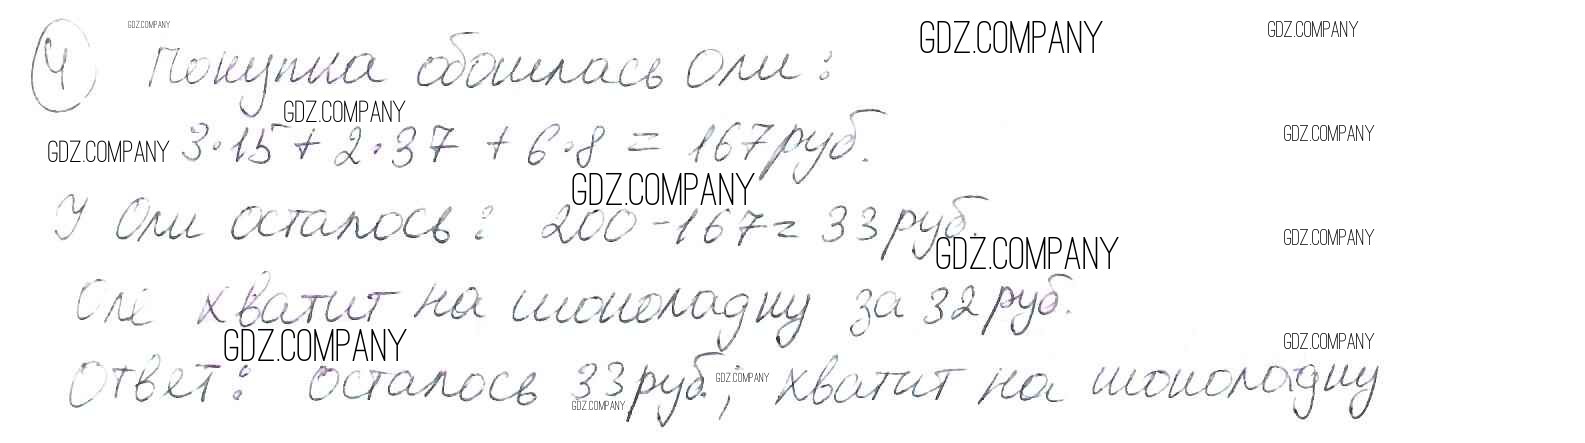 GDZ.COMPANY
GDZ.COMPANY
GDZ.COMPANY
4 Покупка обошлась Оли:
GDZ.COMPANY
GDZ.COMPANY
GDZ.COMPANY
3·15 + 2·37 + 6·8 = 167 руб.
GDZ.COMPANY
У Оли осталось: 200 - 167 = 33 руб.
GDZ.COMPANY
GDZ.COMPANY
Оле хватит на шоколадку за 32 руб.
GDZ.COMPANY
GDZ.COMPANY
Ответ: осталось 33 руб.; хватит на шоколадку
GDZ.COMPANY
GDZ.COMPANY